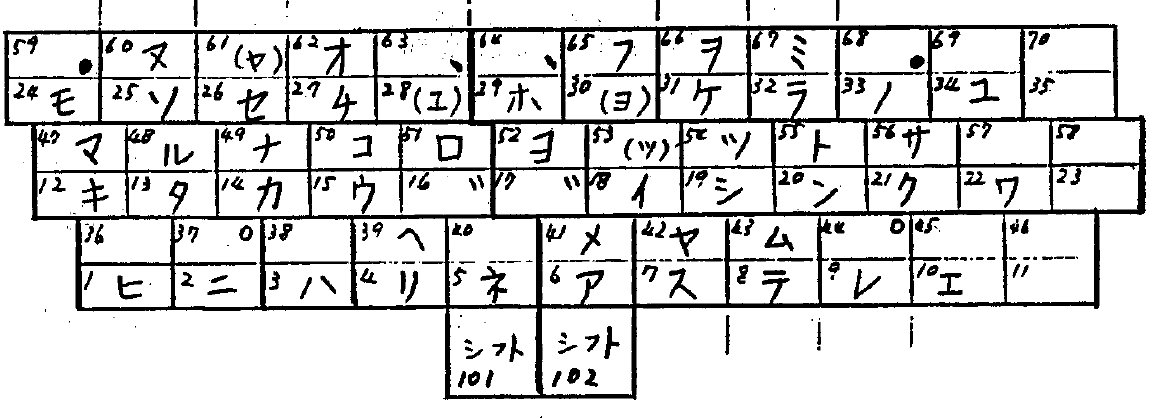 59 • 60 ヌ 61 (ャ) 62 オ 63 、 64 、 65 フ 66 ヲ 67 ミ 68 • 69 70
24 モ 25 ソ 26 セ 27 チ 28 (ュ) 29 ホ 30 (ョ) 31 ケ 32 ラ 33 ノ 34 ユ 35
47 マ 48 ル 49 ナ 50 コ 51 ロ 52 ヨ 53 (ッ) 54 ツ 55 ト 56 サ 57 58
12 キ 13 タ 14 カ 15 ウ 16 ゛ 17 ゛ 18 イ 19 シ 20 ン 21 ク 22 ワ 23
36 37 ○ 38 39 ヘ 40 41 メ 42 ヤ 43 ム 44 ○ 45 46
1 ヒ 2 ニ 3 ハ 4 リ 5 ネ 6 ア 7 ス 8 テ 9 レ 10 エ 11
シフト シフト
101 102